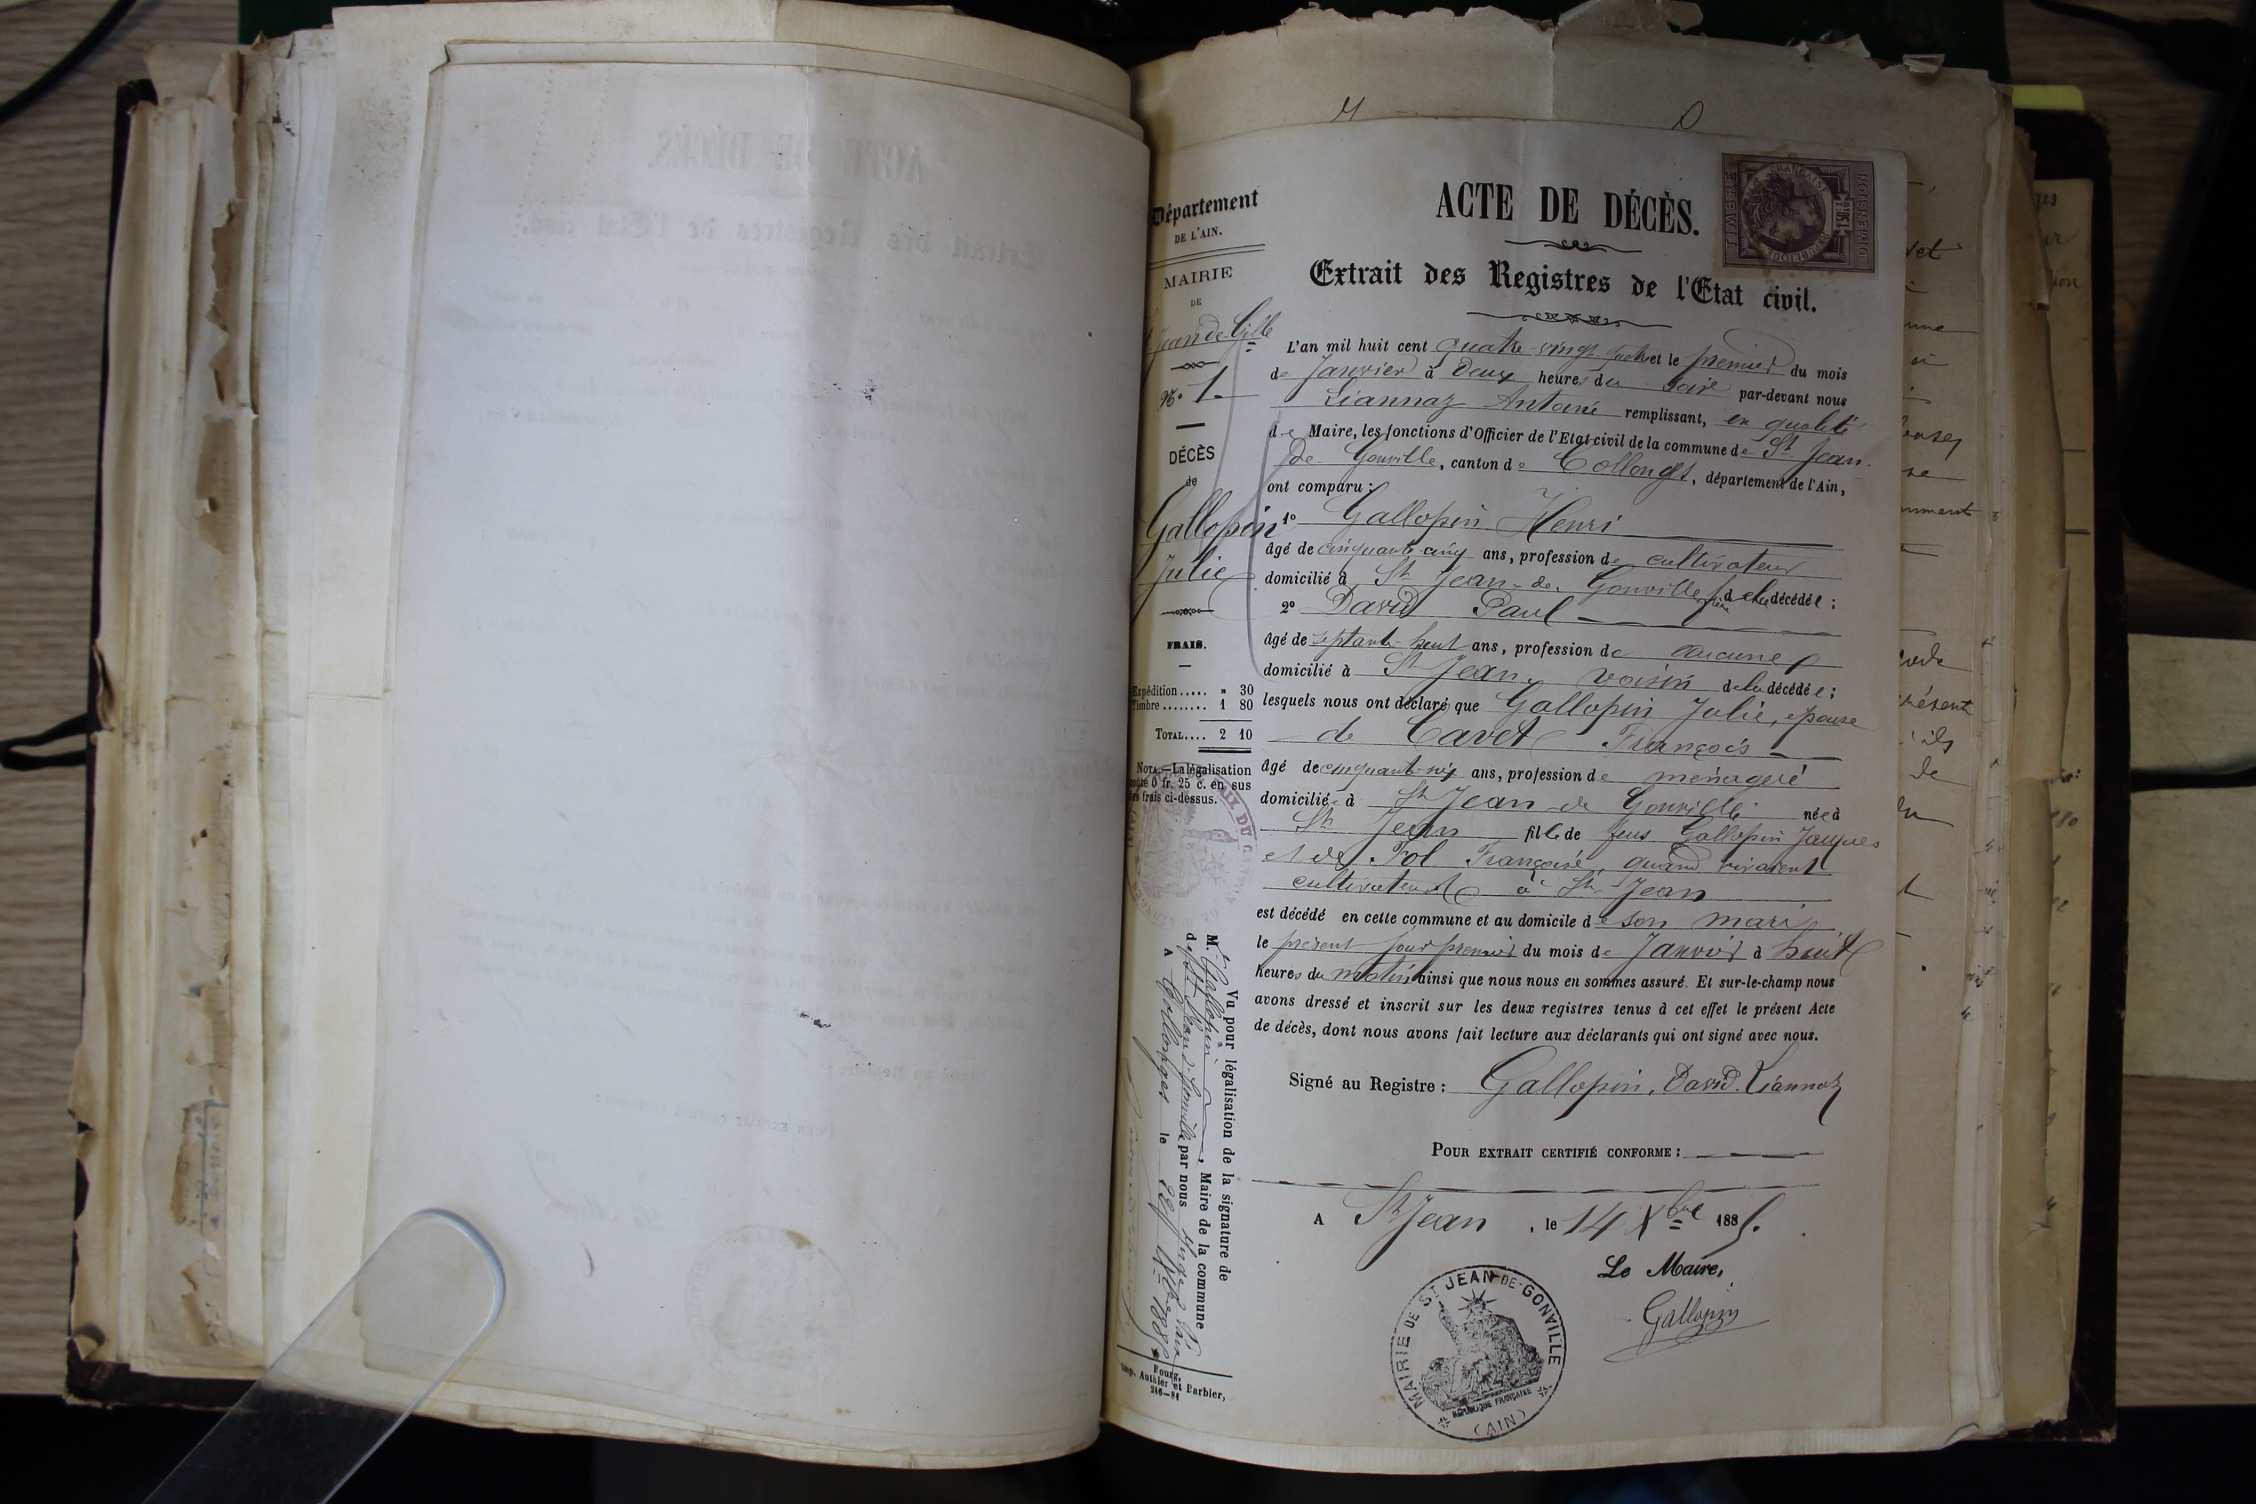 ACTE DE DÉCÈS.
Extrait des Registres de l'Etat civil.
TIMBRE
DIMENSION
Département
DE L'AIN.
MAIRIE
DE
Jean de G^lle
N.° 1
DÉCÈS
de
Gallopin
Julie
FRAIS.
Expédition..... » 30
Timbre........ 1 80
TOTAL.... 2 10
NOTA.—La légalisation
coûte 0 fr. 25 c. en sus
des frais ci-dessus.
L'an mil huit cent quatre-vingt et le premier du mois
de Janvier à Deux heures du soir par-devant nous
Liannaz Antoine remplissant, en qualité
de Maire, les fonctions d'Officier de l'Etat civil de la commune de St Jean
de Gonville, canton de Collonges, département de l'Ain,
ont comparu :
1° Gallopin Henri
âgé de cinquante-cinq ans, profession de cultivateur
domicilié à St Jean-de-Gonville frère de la décédée ;
2° David Paul
âgé de septante-huit ans, profession de aucune
domicilié à St Jean, voisin de la décédée ;
lesquels nous ont déclaré que Gallopin Julie, épouse
de Cavet François
âgée de cinquante-six ans, profession de ménagère
domiciliée à St Jean de Gonville née à
St Jean fille de feus Gallopin Jaques
et de Fol Françoise, quand vivaient
cultivateurs à St Jean
est décédé en cette commune et au domicile de son mari
le présent jour premier du mois de Janvier à huit
heures du matin ainsi que nous nous en sommes assuré. Et sur-le-champ nous
avons dressé et inscrit sur les deux registres tenus à cet effet le présent Acte
de décès, dont nous avons fait lecture aux déclarants qui ont signé avec nous.
Signé au Registre : Gallopin, David. Liannaz
POUR EXTRAIT CERTIFIÉ CONFORME :
A St Jean, le 14 Xbre 188
Le Maire,
Gallopin
MAIRIE DE ST JEAN-DE-GONVILLE
RÉPUBLIQUE FRANÇAISE
(AIN)
Vu pour légalisation de la signature de
M. Gallopin, Maire de la commune
de St Jean de Gonville par nous Juge de Paix
A Collonges le
Bourg,
Imp. Authier et Barbier,
246—84